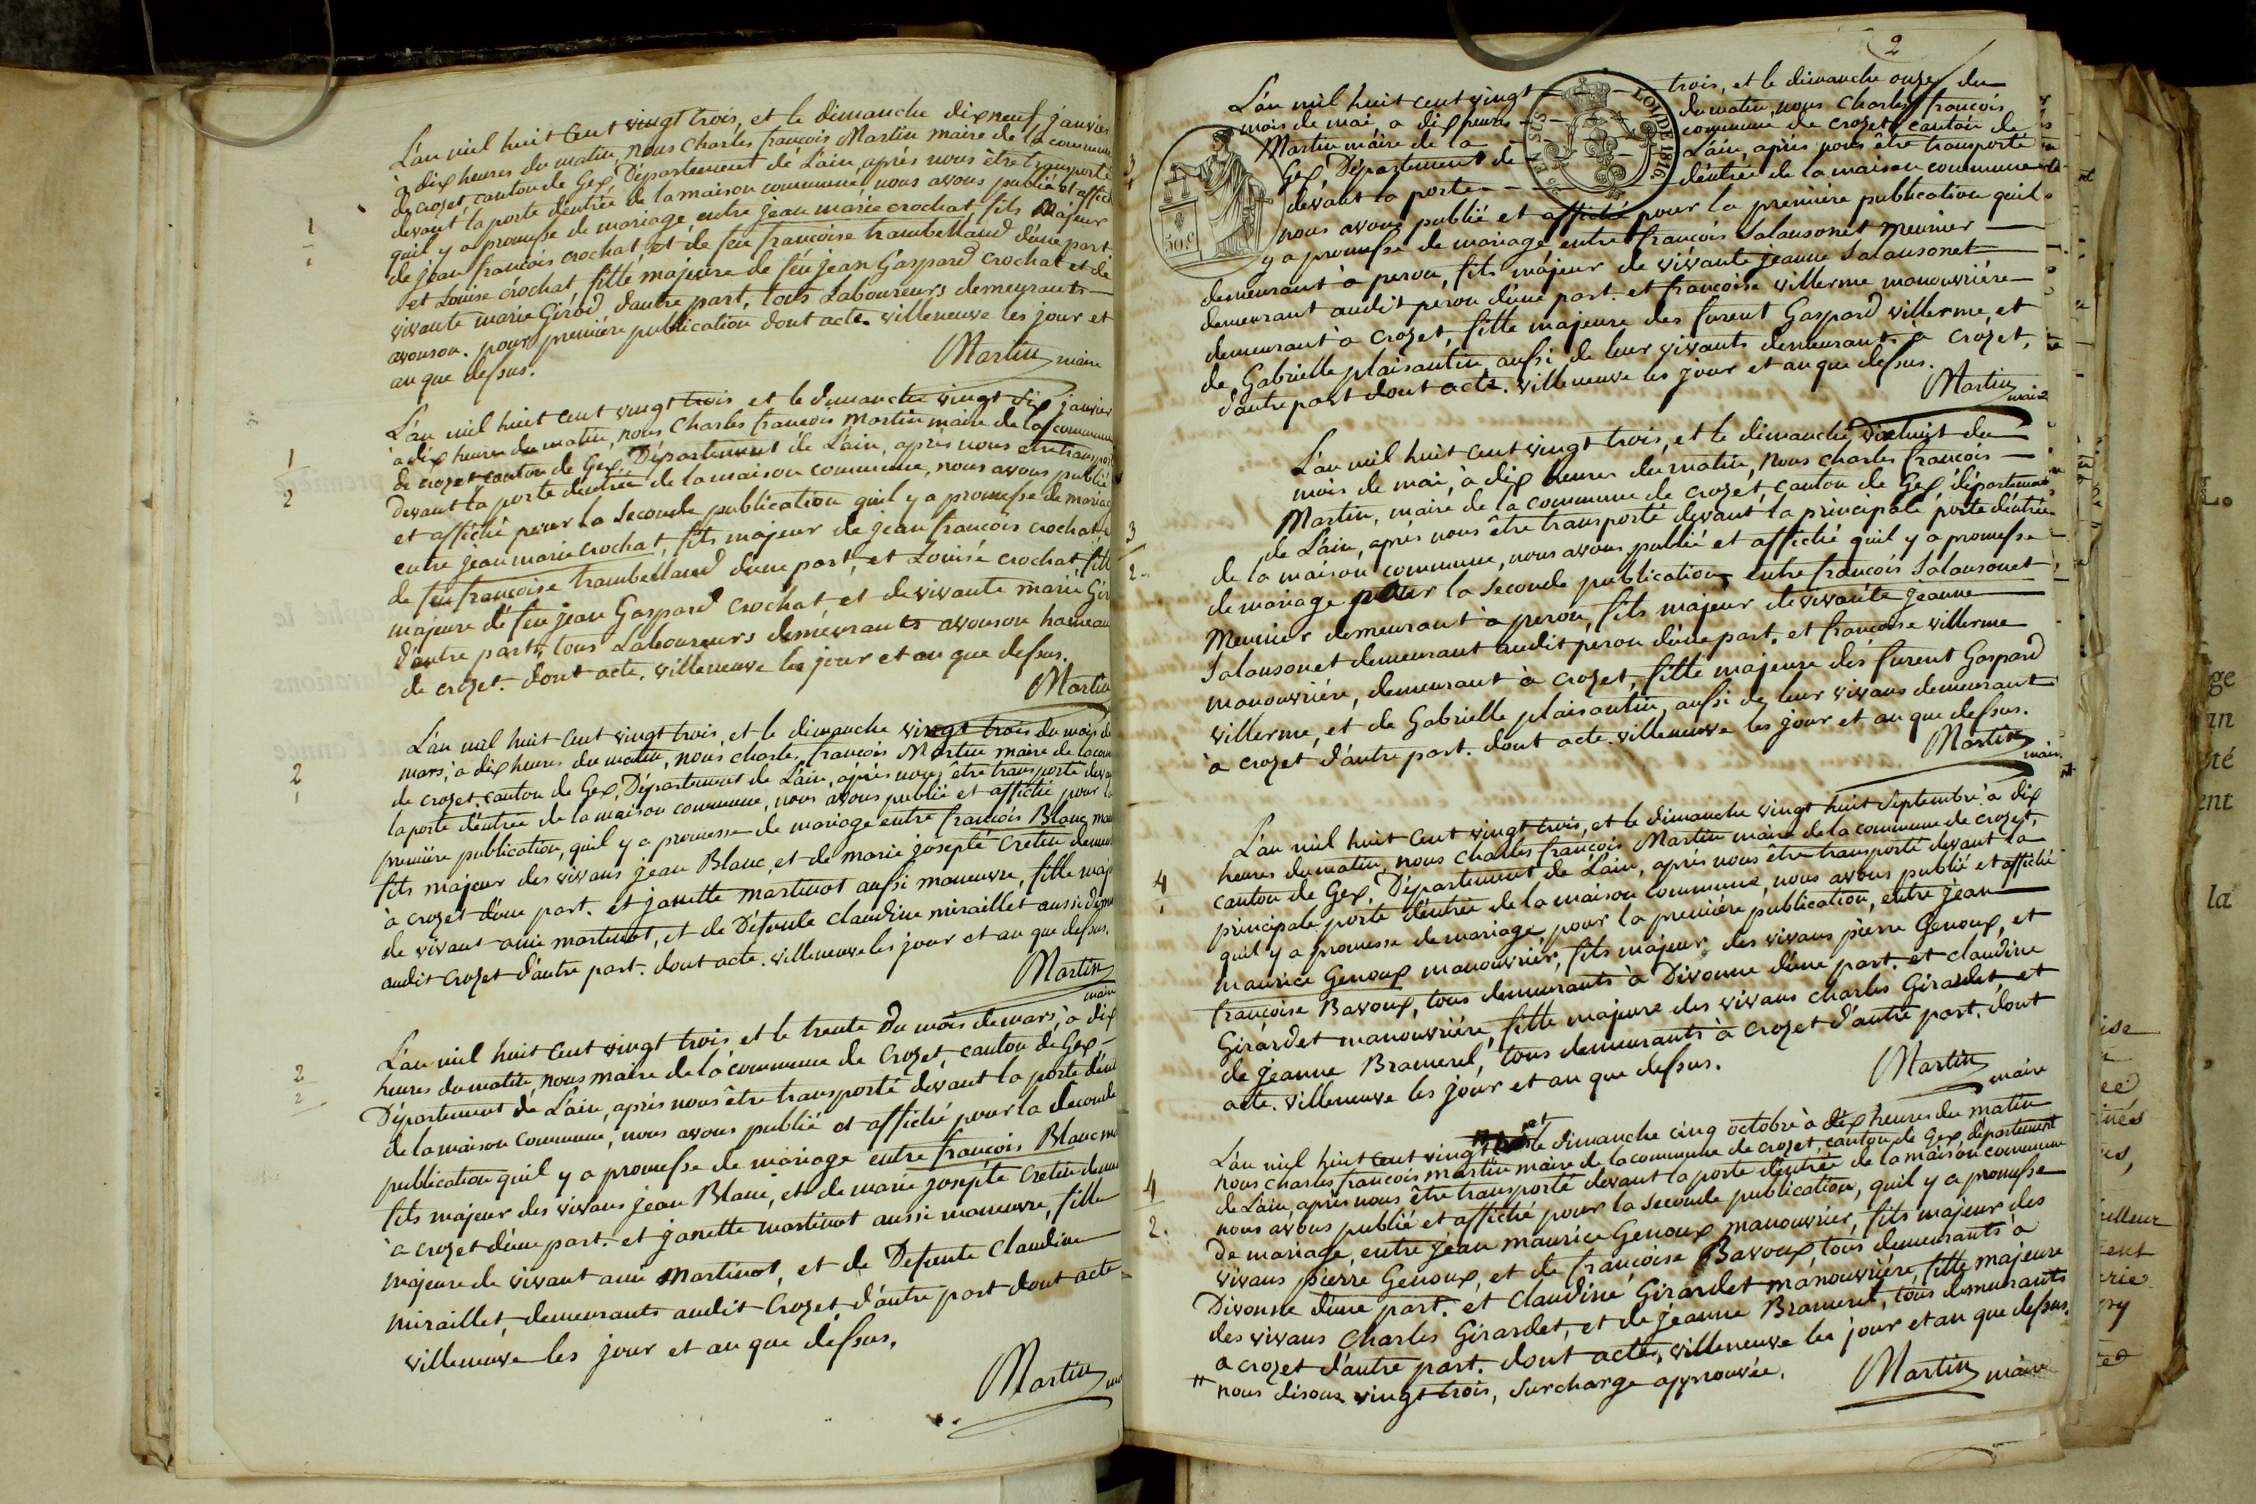 L'an mil huit cent vingt trois, et le dimanche dixneuf janvier
à dix heures du matin, nous Charles françois Martin maire de la commune
de crozet, canton de Gex, Département de L'ain, après nous être transporté
devant la porte d'entrée de la maison commune, nous avons publié et affich
quil y a promesse de mariage, entre jean marie crochat, fils Majeur
de jean françois crochat, et de feu françoise trambelland d'une part
et Louise crochat fille majeure de feu jean Gaspard crochat et de
vivante marie Girod, d'autre part, tous Laboureurs demeurants
avouson. pour première publication dont acte. villeneuve les jour et
an que dessus.
Martin maire
1
1
L'an mil huit cent vingt trois et le dimanche vingt six janvier
à dix heures du matin, nous Charles françois Martin maire de la commune
de crozet canton de Gex, Département de L'ain, après nous etre transpor
devant la porte d'entrée de la maison commune, nous avons publié
et affiché pour la Seconde publication quil y a promesse de mariag
entre jean marie crochat, fils majeur de jean françois crochat,
de feu françoise trambelland d'une part, et Louise crochat fill
majeure de feu jean Gaspard crochat, et de vivante marie Gir
d'autre part, tous Laboureurs demeurants avouson hameau
de crozet. dont acte. villeneuve les jour et an que dessus.
Martin
1
2
L'an mil huit cent vingt trois, et le dimanche vingt trois du mois de
mars, à dix heures du matin, nous charles françois Martin maire de la com
de crozet, canton de Gex, Département de L'ain, après nous être transporté deva
la porte d'entrée de la maison commune, nous avons publié et affiché pour l
première publication, quil y a promesse de mariage entre françois Blanc man
fils majeur des vivans jean Blanc, et de marie josepte Cretin demeu
à crozet d'une part. et janette martinot aussi maneuvre, fille maj
de vivant ami martinot, et de Défunte claudine miraillet aussi dem
audit crozet d'autre part. dont acte. villeneuve les jour et an que dessus.
Martin
maire
2
1
L'an mil huit cent vingt trois et le trente du mois de mars, à dix
heures du matin, nous maire de la commune de Crozet, canton de Gex
Département de L'ain, après nous être transporté devant la porte d'ent
de la maison commune, nous avons publié et affiché pour la Seconde
publication quil y a promesse de mariage entre françois Blanc ma
fils majeur des vivans jean Blanc, et de marie josepte Cretin demeu
à crozet d'une part. et janette martinot aussi maneuvre, fille
majeure de vivant ami Martinot, et de Défunte Claudine
miraillet, demeurants audit Crozet d'autre part dont acte
villeneuve les jour et an que dessus.
Martin
2
2
2
L'an mil huit cent vingt trois, et le dimanche onze du
mois de mai, à dix heures du matin, nous Charles françois
Martin maire de la commune de crozet, canton de
Gex, Département de L'ain, après nous être transporté
devant la porte d'entrée de la maison commune
nous avons publié et affiché pour la première publication quil
y a promesse de mariage entre françois Salansonet meunier
demeurant à peron, fils majeur de vivante jeanne Salansonet
demeurant audit péron d'une part. et françoise villerme manouvrière
demeurant à Crozet, fille majeure des furent Gaspard villerme, et
de Gabrielle plaisantin, aussi de leur vivants demeurants à crozet,
d'autre part dont acte. villeneuve les jour et an que dessus.
Martin maire
3
1
50 C
LOI DE 1816
50 C EN SUS
L'an mil huit cent vingt trois, et le dimanche dixhuit du
mois de mai, à dix heures du matin, nous charles françois
Martin, maire de la commune de crozet, canton de Gex, département
de L'ain, après nous être transporté devant la principale porte d'entrée
de la maison commune, nous avons publié et affiché quil y a promesse
de mariage pour la Seconde publication, entre françois Salansonet
Meunier demeurant à peron, fils majeur de vivante jeanne
Salansonet demeurant audit péron d'une part. et françoise villerme
manouvrière, demeurant à crozet, fille majeure des furent Gaspard
villerme, et de Gabrielle plaisantin, aussi de leur vivans demeurant
à crozet d'autre part. dont acte. villeneuve les jour et an que dessus.
Martin maire
3
2
L'an mil huit cent vingt trois, et le dimanche vingt huit Septembre à dix
heures du matin, nous charles françois Martin maire de la commune de crozet,
canton de Gex, Département de L'ain, après nous être transporté devant la
principale porte d'entrée de la maison commune, nous avons publié et affiché
quil y a promesse de mariage, pour la première publication, entre jean
maurice Genoux manouvrier, fils majeur des vivans pierre Genoux, et
françoise Bavoux, tous demeurants à Divonne d'une part. et claudine
Girardet manouvrière, fille majeure des vivans charles Girardet, et
de jeanne Bramerel, tous demeurants à crozet d'autre part. dont
acte. villeneuve les jour et an que dessus.
Martin maire
4
1
L'an mil huit cent vingt trois et le dimanche cinq octobre à dix heures du matin
nous charles françois martin maire de la commune de crozet, canton de Gex, département
de L'ain, après nous être transporté devant la porte d'entrée de la maison commune
nous avons publié et affiché pour la Seconde publication, quil y a promesse
de mariage, entre jean maurice Genoux manouvrier, fils majeur des
vivans pierre Genoux, et de françoise Bavoux, tous demeurants à
Divonne d'une part. et Claudine Girardet manouvrière, fille majeure
des vivans Charles Girardet, et de jeanne Bramerel, tous demeurants
à crozet d'autre part. dont acte. villeneuve les jour et an que dessus.
# nous disons vingt trois, surcharge approuvée.
Martin maire
4
2